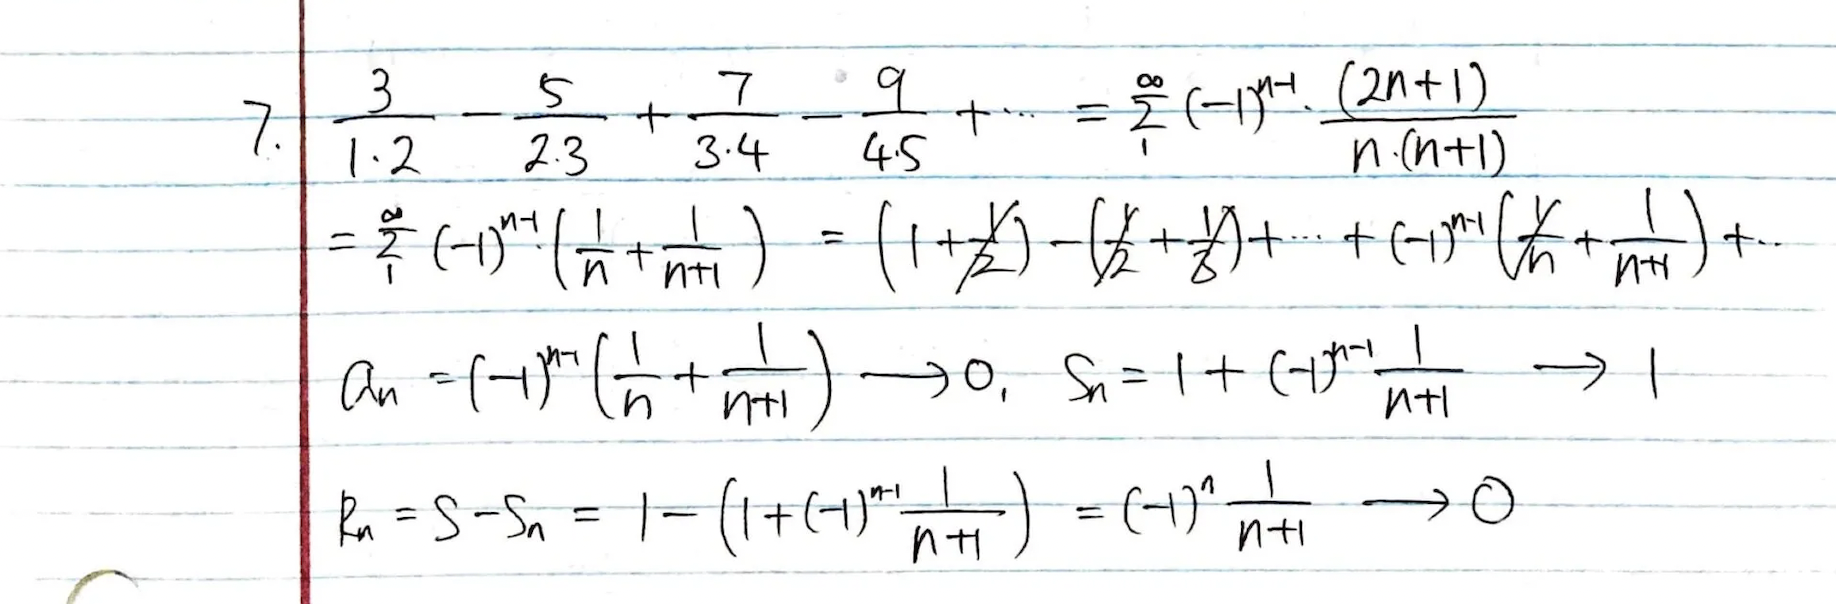 7. 3/(1·2) − 5/(2·3) + 7/(3·4) − 9/(4·5) + ··· = ∑₁^∞ (−1)^(n−1) · (2n+1)/(n·(n+1))
= ∑₁^∞ (−1)^(n−1) · (1/n + 1/(n+1)) = (1 + 1/2) − (1/2 + 1/3) + ··· + (−1)^(n−1) (1/n + 1/(n+1)) + ···
aₙ = (−1)^(n−1) (1/n + 1/(n+1)) → 0, Sₙ = 1 + (−1)^(n−1) 1/(n+1) → 1
Rₙ = S − Sₙ = 1 − (1 + (−1)^(n−1) 1/(n+1)) = (−1)^n 1/(n+1) → 0